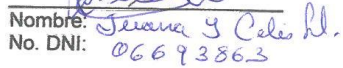 Nombre: Juana Y Celis M.
No. DNI: 06693863